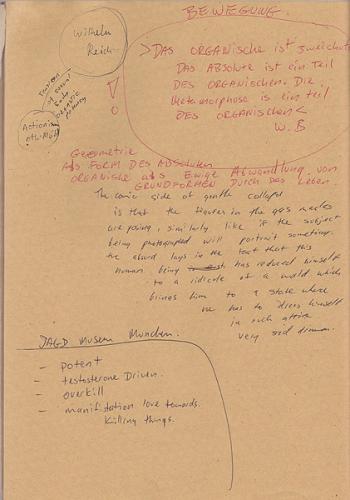 BEWEGUNG.
Wilhelm
Reich
>DAS ORGANISCHE IST
DAS ABSOLUTE IST EIN TEIL
DES ORGANISCHEN. DIE
METAMORPHOSE IS EIN TEIL
DES ORGANISCHEN<
W.B
Geometrie
ALS FORM DES ABSOLUTEN
ORGANISCHE als Ewige Abwandlung von
GRUNDFORMEN DURCH DAS Leben.
The comic side of gentle collapse
is that the figures in the gas masks
are posing, similarly like if the subject
being photographed will portrait something.
the absurd lays in the fact that this
human being has reduced himself
to a ridicule of a world which
brings him to a state where
he has to dress himself
in such attire
very sad
JAGD Museum München.
- potent
- testosterone Driven.
- overkill
- manifistation love towards.
Killing things.